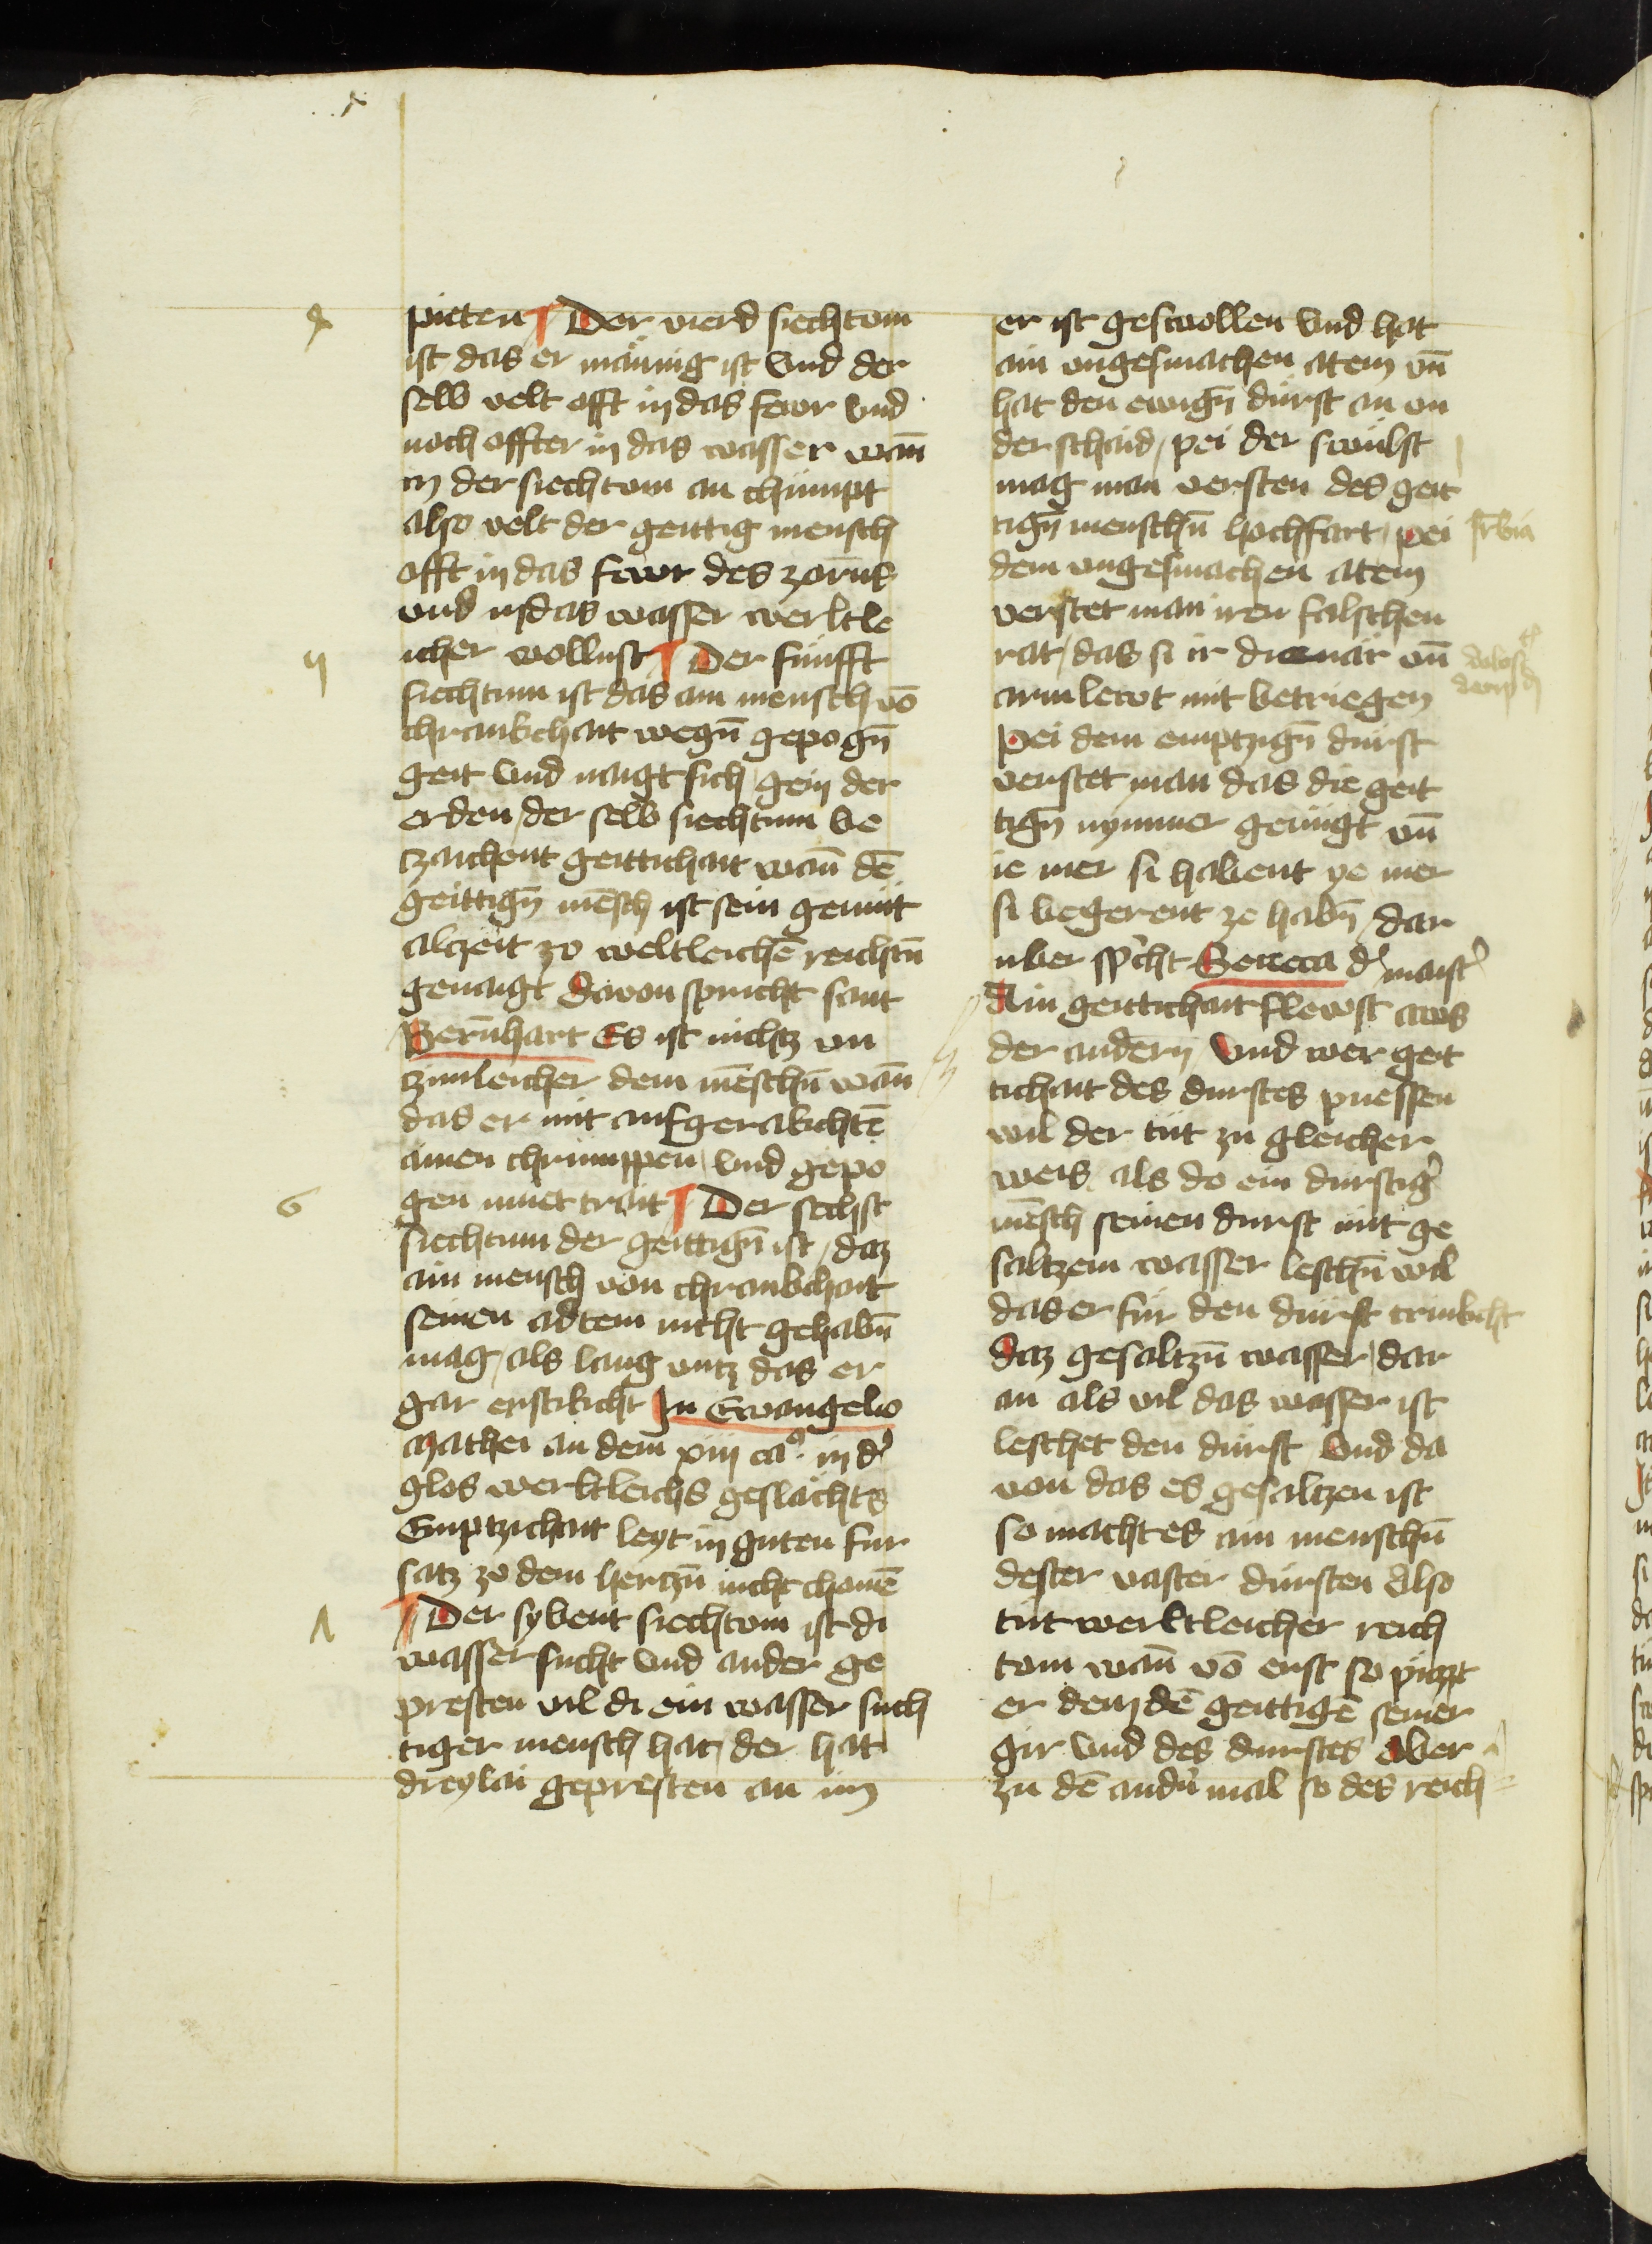 4
pieten ¶ Der vierd siechtom
ist das er mänig ist Vnd der
selb velt offt in das fewr vnd
noch offter in das wasser wan̄
in der siechtom an chümpt
also velt der geittig mensch
offt in das fewr des zorns
vnd in das wasser werltle
icher wollust ¶ Der fünfft
siechtum ist das ain mensch vō
chrankchait wegn̄ gepogn̄
geit Vnd naigt sich gein der
erden, der selb siechtum be
tzaichent geittichait wan̄ dē
geittign̄ mēsch ist sein gemüt
alczeit zo weltleichē reichtn̄
genaigt Davon spricht sant
Bern̄hart Es ist nichtz vn
tzimleicher dem mēschn̄ wan̄
das er mit aufgerakchtē
ainen chrumppen vnd gepo
gen muet trait ¶ Der sechst
6
siechtum der geittign̄ ist, daz
ain mensch von chrankchait
seinen adtem nicht gehabn̄
mag, als lang vntz das er
gar erstikcht In Ewangelio
Mathei an dem xiii ca°. in d'
glos werltleichs geslächts
Emptzichait leyt in guten fur
satz zo dem hertzn̄ nicht chomē
¶ Der sybent siechtom ist di
wassersucht Vnd ander ge
presten vil di ein wasser such
tiger mensch hat, der hat
dreylai gepresten an im
er ist geswollen Vnd hat
ain vngesmachen atem vn̄
hat den ewign̄ dürst an vn
der schaid, pei der swülst
mag man versten des geit
tign̄ menschn̄ hochffart, pei
dem vngesmachen atem
verstet man iren falschen
rat, das si ir diernär vn̄
arm lewt mit betriegen
Pei dem emptzign̄ dürst
verstet man das die geit
tign̄ nymmer genügt vn̄
ie mer si habent ye mer
si begerent ze habn̄, dar
uber sp'icht Seneca d' maist'
Ain geittichait flewst aws
der andern̄ Vnd wer geit
tichait des durstes puessen
wil der tüt zu gleicher
weis als do ein durstig'
mēsch seinen durst mit ge
saltzem wasser leschn̄ wil
das er für den dürst trinkcht
daz gesaltzn̄ wasser, dar
an als vil das wasser ist
leschet den dürst Vnd da
von das es gesaltzen ist
so macht es ain menschn̄
dester vaster dürsten Also
tüt werltleicher reich
tom wan̄ vō erst so püzzt
er dem dē geittigē seiner
gir Vnd des durstes Aber
zu dē andn̄ mal so des reich